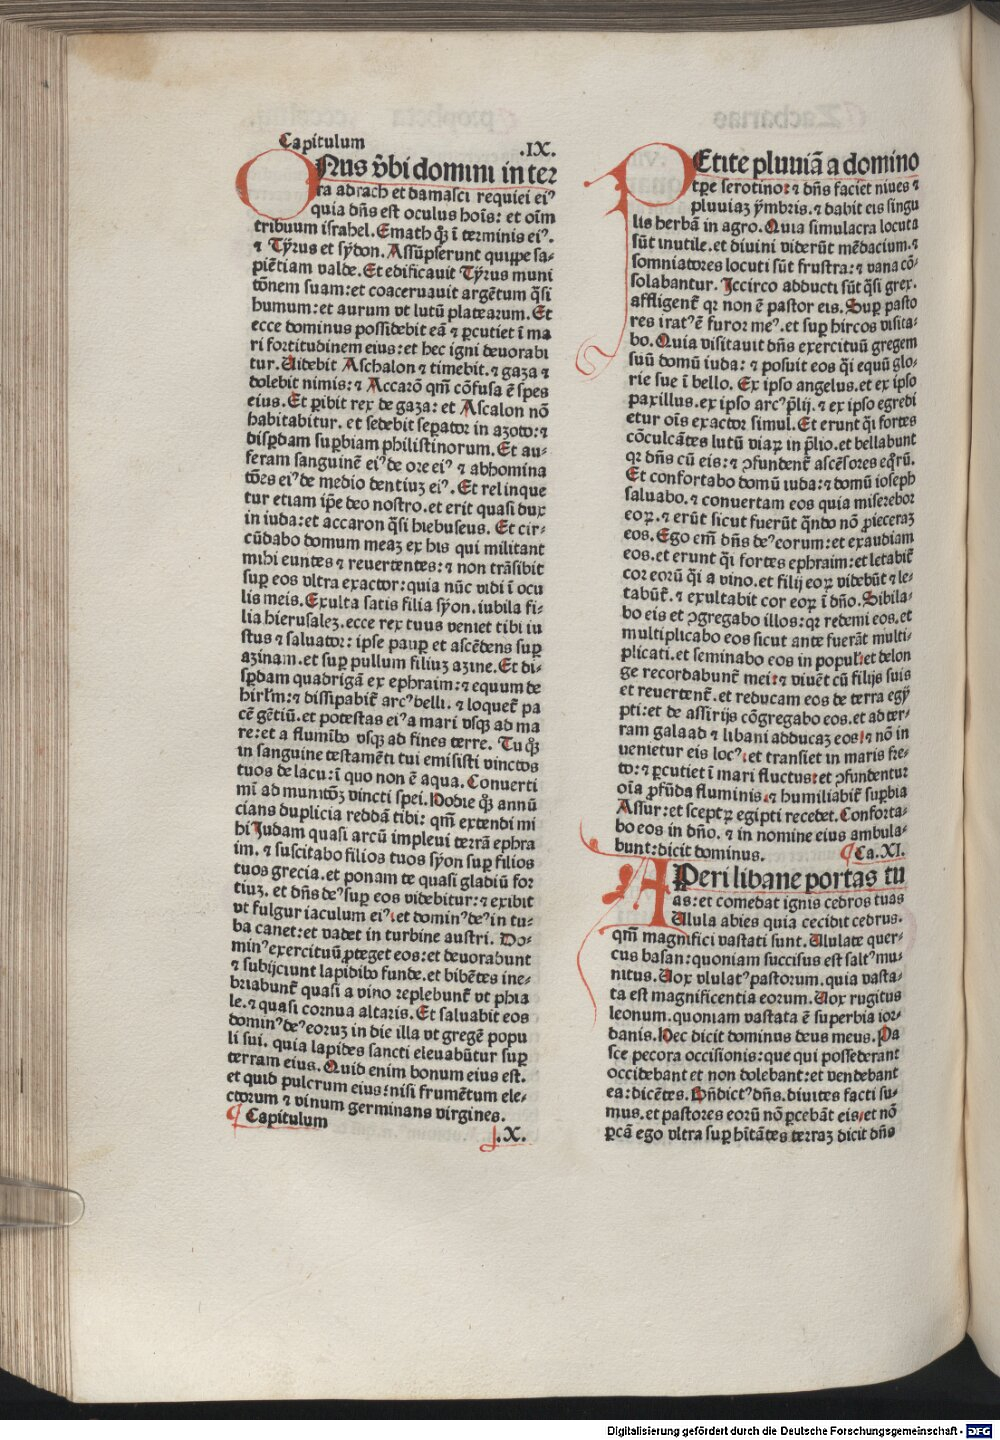 Capitulum .IX.
ONus v̄bi domini in ter
ra adrach et damasci requiei eiꝰ
quia dn̄s est oculus hoīs: et oīm
tribuum israhel. Emath q̄ꝫ ī terminis eiꝰ.
⁊ Tẏrus et sẏdon. Assūpserunt quippe sa-
piētiam valde. Et edificauit Tẏrus muni
tōnem suam: et coaceruauit argētum q̄si
humum: et aurum vt lutū platearum. Et
ecce dominus possidebit eā ⁊ ꝑcutiet ī ma
ri fortitudinem eius: et hec igni deuorabi
tur. Videbit Aschalon ⁊ timebit. ⁊ gaza ⁊
dolebit nimis: ⁊ Accarō qm̄ cōfusa ē spes
eius. Et ꝑibit rex de gaza: et Ascalon nō
habitabitur. et sedebit seꝑator in azoto: ⁊
disꝑdam suꝑbiam philistinorum. Et au-
feram sanguinē eiꝰ de ore eiꝰ ⁊ abhomina
tōes eiꝰ de medio dentiuꝫ eiꝰ. Et relinque
tur etiam ip̄e deo nostro. et erit quasi dux
in iuda: et accaron q̄si hiebuseus. Et cir-
cūdabo domum meaꝫ ex his qui militant
mihi euntes ⁊ reuertentes: ⁊ non trāsibit
suꝑ eos vltra exactor: quia nūc vidi ī ocu
lis meis. Exulta satis filia sẏon. iubila fi-
lia hierusaleꝫ. ecce rex tuus veniet tibi iu
stus ⁊ saluator: ipse pauꝑ et ascēdens suꝑ
azinam. et suꝑ pullum filiuꝫ azine. Et di-
sꝑdam quadrigā ex ephraim: ⁊ equum de
hirlm̄: ⁊ dissipabit̄ arcꝰ belli. ⁊ loquet̄ pa
cē gētiū. et potestas eiꝰ a mari vsqꝫ ad ma
re: et a flumīb̄o vsqꝫ ad fines terre. Tu q̄ꝫ
in sanguine testamēti tui emisisti vinctos
tuos de lacu: ī quo non ē aqua. Conuerti
mī ad munitōꝫ vincti spei. Hodie q̄ꝫ annū
cians duplicia reddā tibi: qm̄ extendi mi
hi Judam quasi arcū impleui terrā ephra
im. ⁊ suscitabo filios tuos sẏon suꝑ filios
tuos grecia. et ponam te quasi gladiū for
tiuꝫ. et dn̄s deꝰ suꝑ eos videbitur: ⁊ exibit
vt fulgur iaculum eiꝰ. et dominꝰ deꝰ in tu-
ba canet: et vadet in turbine austri. Do-
minꝰ exercituū ꝓteget eos: et deuorabunt
⁊ subijciunt lapidib̄o funde. et bibētes ine-
briabunt̄ quasi a vino replebunt̄ vt phia
le. ⁊ quasi cornua altaris. Et saluabit eos
dominꝰ deꝰ eoruꝫ in die illa vt gregē popu
li sui. quia lapides sancti eleuabūtur suꝑ
terram eius. Quid enim bonum eius est.
et quid pulcrum eius: nisi frumētum ele-
ctorum ⁊ vinum germinans virgines.
Capitulum .X.
PEtite pluuiā a domino
tꝑe serotino: ⁊ dn̄s faciet niues ⁊
pluuiaꝫ ẏmbris. ⁊ dabit eis singu
lis herbā in agro. Quia simulacra locuta
sūt inutile. et diuini viderūt mēdacium. ⁊
somniatores locuti sūt frustra: ⁊ vana cō-
solabantur. Iccirco adducti sūt q̄si grex.
affligent̄ qꝛ non ē pastor eis. Suꝑ pasto
res iratꝰ ē furor meꝰ. et suꝑ hircos visita-
bo. Quia visitauit dn̄s exercituū gregem
suū domū iuda: ⁊ posuit eos q̄i equū glo-
rie sue ī bello. Ex ipso angelus. et ex ipso
paxillus. ex ipso arcꝰ p̄lij. ⁊ ex ipso egredi
etur oīs exactor simul. Et erunt q̄i fortes
cōculcātes lutū viaꝝ in p̄lio. et bellabunt
qꝛ dn̄s cū eis: ⁊ ꝯfundent̄ ascēsores eq̄rū.
Et confortabo domū iuda: ⁊ domū ioseph
saluabo. ⁊ conuertam eos quia miserebor
eoꝝ. ⁊ erūt sicut fuerūt q̄ndo nō ꝓieceraꝫ
eos. Ego em̄ dn̄s deꝰ eorum: et exaudiam
eos. et erunt q̄i fortes ephraim: et letabit̄
cor eorū q̄i a vino. et filij eoꝝ videbūt ⁊ le-
tabūt̄. ⁊ exultabit cor eoꝝ ī dn̄o. Sibila-
bo eis et ꝯgregabo illos: qꝛ redemi eos. et
multiplicabo eos sicut ante fuerāt multi-
plicati. et seminabo eos in popul̓: et delon
ge recordabunt̄ mei: ⁊ viuēt cū filijs suis
et reuertent̄. et reducam eos de terra egẏ
pti: et de assirijs cōgregabo eos. et ad ter-
ram galaad ⁊ libani adducaꝫ eos: ⁊ nō in
uenietur eis locꝰ. et transiet in maris fre-
to: ⁊ ꝑcutiet ī mari fluctus: et ꝯfundentur
oīa ꝓfūda fluminis. ⁊ humiliabit̄ suꝑbia
Assur: et sceptꝝ egipti recedet. Conforta-
bo eos in dn̄o. ⁊ in nomine eius ambula-
bunt: dicit dominus. Ca. XI.
APeri libane portas tu
as: et comedat ignis cedros tuas
Ulula abies quia cecidit cedrus.
qm̄ magnifici vastati sunt. Ululate quer-
cus basan: quoniam succisus est saltꝰ mu-
nitus. Vox vlulatꝰ pastorum. quia vasta-
ta est magnificentia eorum. Vox rugitus
leonum. quoniam vastata ē superbia ior-
danis. Hec dicit dominus deus meus. Pa
sce pecora occisionis: que qui possederant
occidebant et non dolebant: et vendebant
ea: dicētes. Bn̄dictꝰ dn̄s. diuites facti su-
mus. et pastores eorū nō ꝑcebāt eis. et nō
ꝑcā ego vltra suꝑ hītātes terraꝫ dicit dn̄s
Digitalisierung gefördert durch die Deutsche Forschungsgemeinschaft - DFG